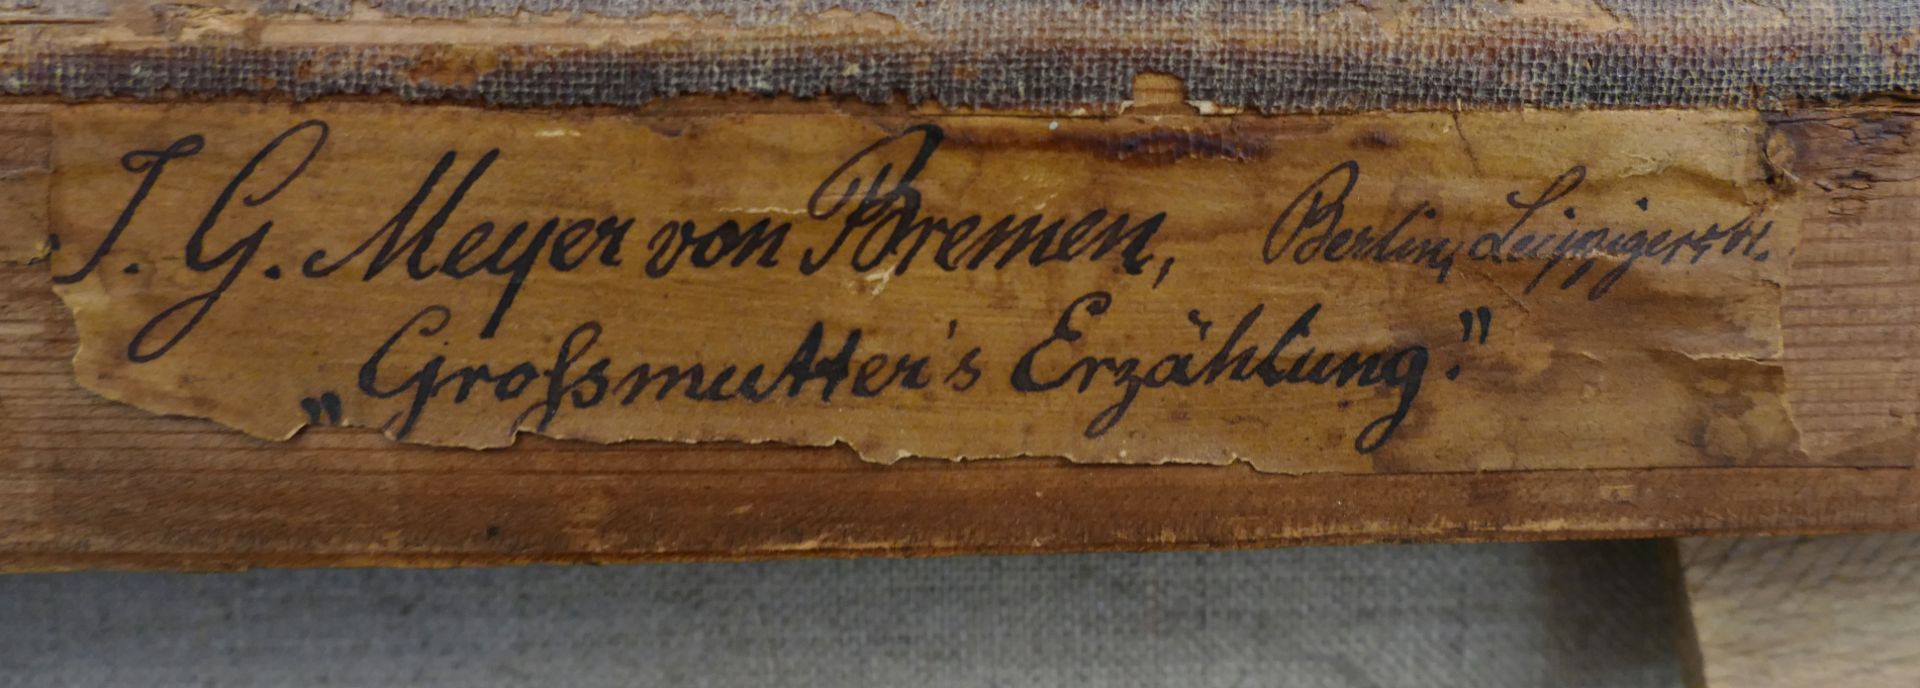 J. G. Meyer von Bremen, Berlin, Leipzigerstr.
„Großmutter's Erzählung."